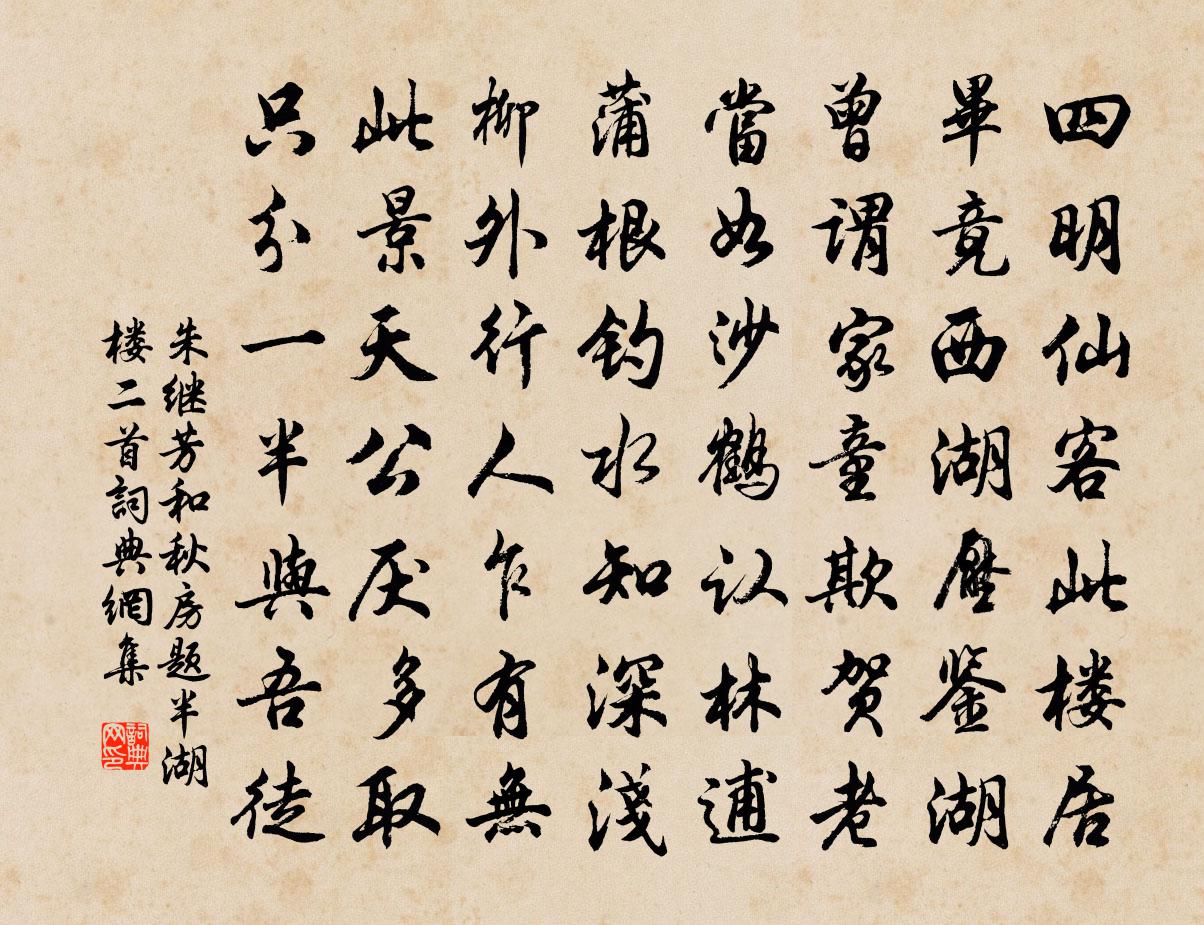 四明仙客此楼居
畢竟西湖壓鉴湖
曾谓家童欺贺老
當如沙鶴认林逋
蒲根钓水知深淺
柳外行人乍有無
此景天公厌多取
只分一半與吾徒
朱继芳和秋房题半湖
楼二首詞典網集
詞典网印